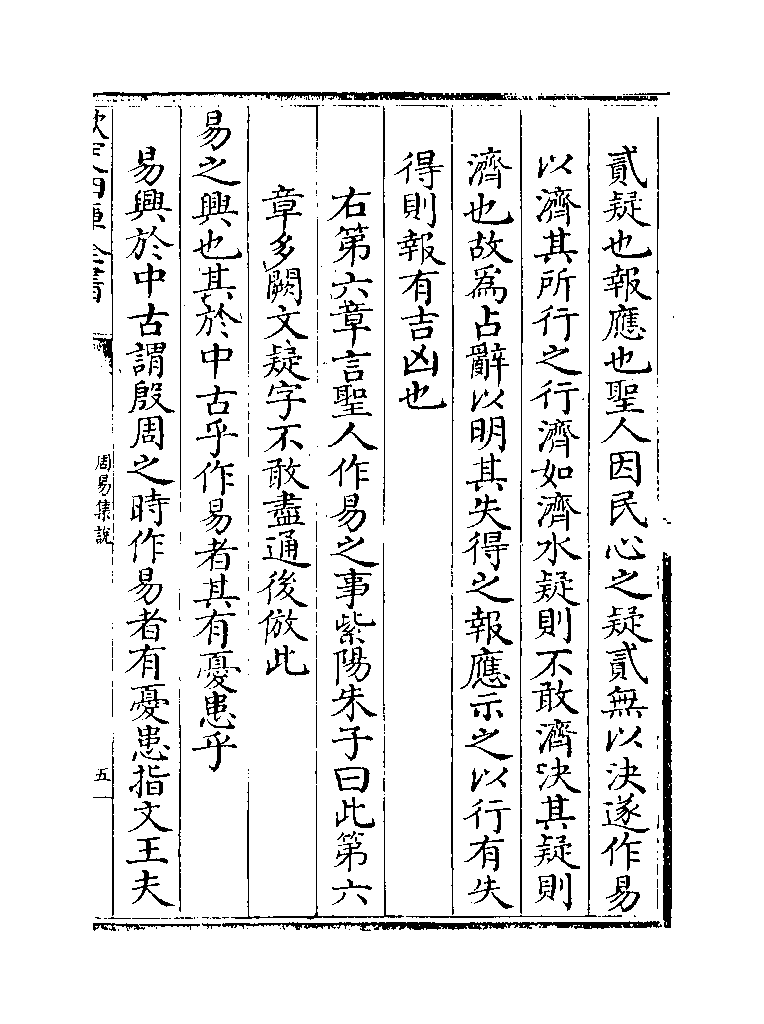 貳疑也報應也聖人因民心之疑貳無以決遂作易
以濟其所行之行濟如濟水疑則不敢濟決其疑則
濟也故爲占辭以明其失得之報應示之以行有失
得則報有吉凶也
右第六章言聖人作易之事紫陽朱子曰此第六
章多闕文疑字不敢盡通後倣此
易之興也其於中古乎作易者其有憂患乎
易興於中古謂殷周之時作易者有憂患指文王夫
欽定四庫全書
周易集說
五